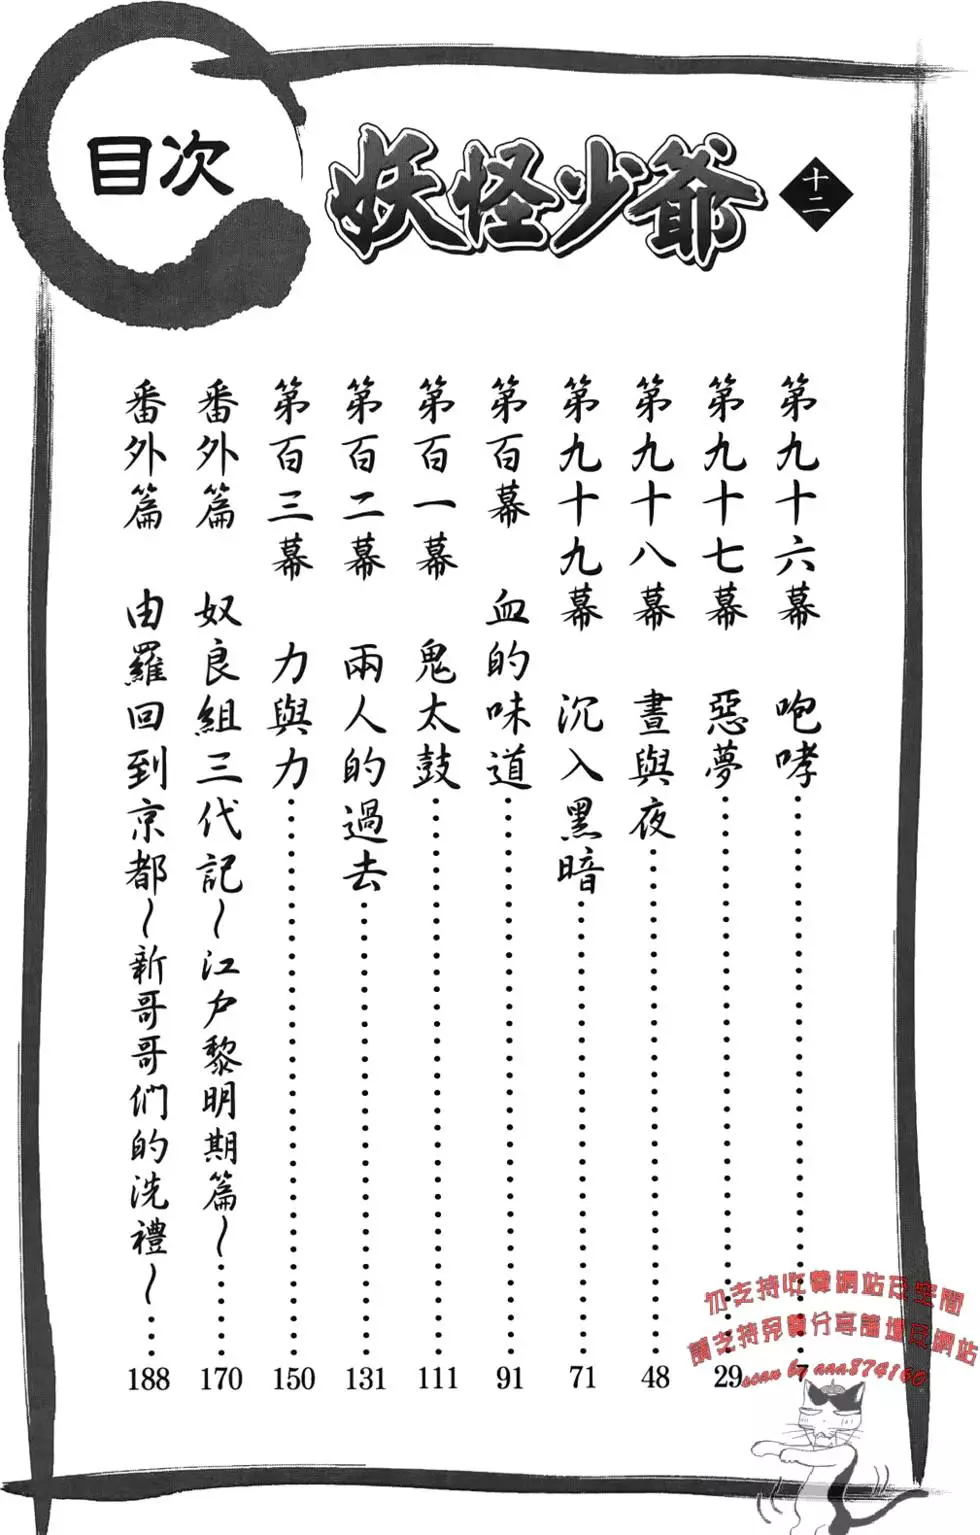 目次
妖怪少爺
十二
第九十六幕 咆哮……7
第九十七幕 惡夢……29
第九十八幕 晝與夜……48
第九十九幕 沉入黑暗……71
第百幕 血的味道……91
第百一幕 鬼太鼓……111
第百二幕 兩人的過去……131
第百三幕 力與力……150
番外篇 奴良組三代記～江戶黎明期篇～……170
番外篇 由羅回到京都～新哥哥們的洗禮～……188
勿支持收費網站及空間
請支持免費分享論壇及網站
scan by aaa874160